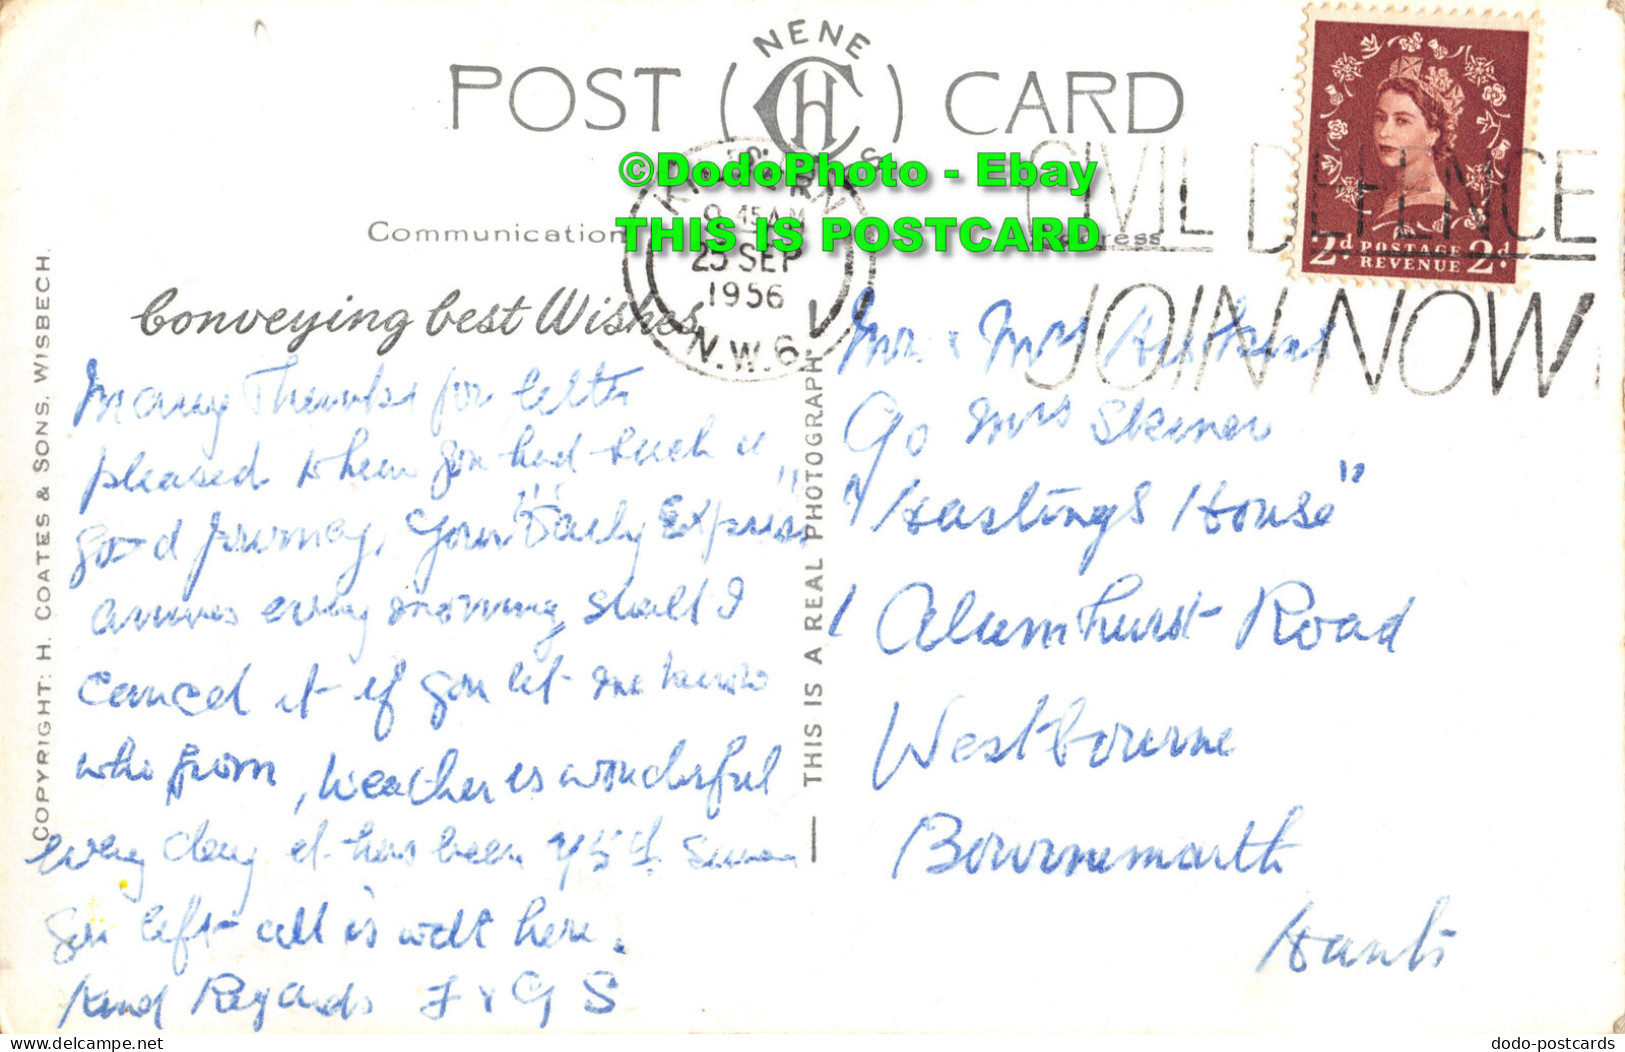 NENE
POST (CH) CARD
S
©DodoPhoto - Ebay
THIS IS POSTCARD
Communication
Address
KILBURN
9.45AM
25 SEP
1956
N.W.6
CIVIL DEFENCE
JOIN NOW
2d POSTAGE REVENUE 2d
COPYRIGHT: H. COATES & SONS. WISBECH.
Conveying best Wishes
Many Thanks for letter
pleased to hear you had such a
good journey, your "Daily Express"
arrives every morning shall I
cancel it if you let me know
who from, weather is wonderful
every day it has been 75° since
you left all is well here.
Kind Regards F & G S
THIS IS A REAL PHOTOGRAPH
Mr & Mrs
C/o Mrs Skinner
"Hastings House"
1 Alumhurst Road
Westbourne
Bournemouth
Hants
dodo-postcards